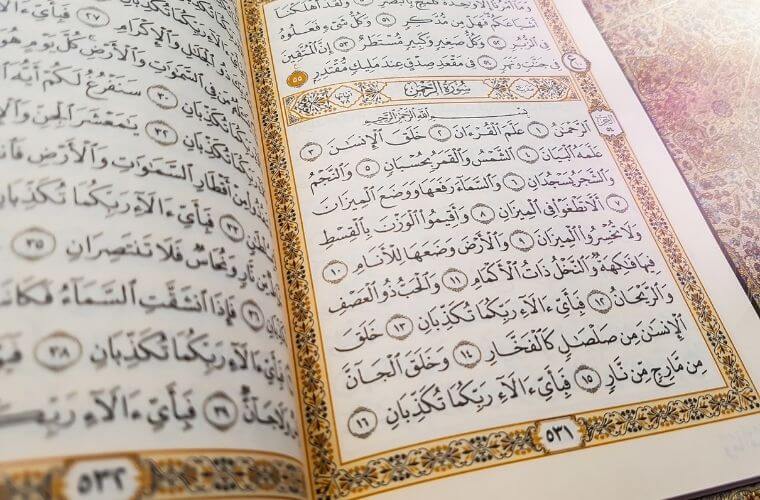 وَمَآ أَمْرُنَآ إِلَّا وَٰحِدَةٌ كَلَمْحٍۭ بِٱلْبَصَرِ ٥٠ وَلَقَدْ أَهْلَكْنَآ
أَشْيَاعَكُمْ فَهَلْ مِن مُّدَّكِرٍ ٥١ وَكُلُّ شَىْءٍ فَعَلُوهُ
فِى ٱلزُّبُرِ ٥٢ وَكُلُّ صَغِيرٍ وَكَبِيرٍ مُّسْتَطَرٌ ٥٣ إِنَّ ٱلْمُتَّقِينَ
فِى جَنَّٰتٍ وَنَهَرٍ ٥٤ فِى مَقْعَدِ صِدْقٍ عِندَ مَلِيكٍ مُّقْتَدِرٍۭ ٥٥
سُورَةُ الرَّحْمٰن
بِسْمِ ٱللَّهِ ٱلرَّحْمَٰنِ ٱلرَّحِيمِ
ٱلرَّحْمَٰنُ ١ عَلَّمَ ٱلْقُرْءَانَ ٢ خَلَقَ ٱلْإِنسَٰنَ ٣
عَلَّمَهُ ٱلْبَيَانَ ٤ ٱلشَّمْسُ وَٱلْقَمَرُ بِحُسْبَانٍ ٥ وَٱلنَّجْمُ
وَٱلشَّجَرُ يَسْجُدَانِ ٦ وَٱلسَّمَآءَ رَفَعَهَا وَوَضَعَ ٱلْمِيزَانَ
٧ أَلَّا تَطْغَوْا۟ فِى ٱلْمِيزَانِ ٨ وَأَقِيمُوا۟ ٱلْوَزْنَ بِٱلْقِسْطِ
وَلَا تُخْسِرُوا۟ ٱلْمِيزَانَ ٩ وَٱلْأَرْضَ وَضَعَهَا لِلْأَنَامِ ١٠
فِيهَا فَٰكِهَةٌ وَٱلنَّخْلُ ذَاتُ ٱلْأَكْمَامِ ١١ وَٱلْحَبُّ ذُو ٱلْعَصْفِ
وَٱلرَّيْحَانُ ١٢ فَبِأَىِّ ءَالَآءِ رَبِّكُمَا تُكَذِّبَانِ ١٣ خَلَقَ
ٱلْإِنسَٰنَ مِن صَلْصَٰلٍ كَٱلْفَخَّارِ ١٤ وَخَلَقَ ٱلْجَآنَّ
مِن مَّارِجٍ مِّن نَّارٍ ١٥ فَبِأَىِّ ءَالَآءِ رَبِّكُمَا تُكَذِّبَانِ ١٦
٥٣١
ٱلْجَلَٰلِ وَٱلْإِكْرَامِ ٢٧ فَبِأَىِّ
فِى ٱلسَّمَٰوَٰتِ وَٱلْأَرْضِ كُلَّ يَوْمٍ هُوَ
تُكَذِّبَانِ ٣٠ سَنَفْرُغُ لَكُمْ أَيُّهَ
تُكَذِّبَانِ ٣٢ يَٰمَعْشَرَ ٱلْجِنِّ
مِنْ أَقْطَارِ ٱلسَّمَٰوَٰتِ وَٱلْأَرْضِ
فَبِأَىِّ ءَالَآءِ رَبِّكُمَا تُكَذِّبَانِ
مِّن نَّارٍ وَنُحَاسٌ فَلَا تَنتَصِرَانِ ٣٥
فَإِذَا ٱنشَقَّتِ ٱلسَّمَآءُ فَكَانَتْ
ءَالَآءِ رَبِّكُمَا تُكَذِّبَانِ ٣٨
وَلَا جَآنٌّ ٣٩ فَبِأَىِّ ءَالَآءِ
٥٣٢